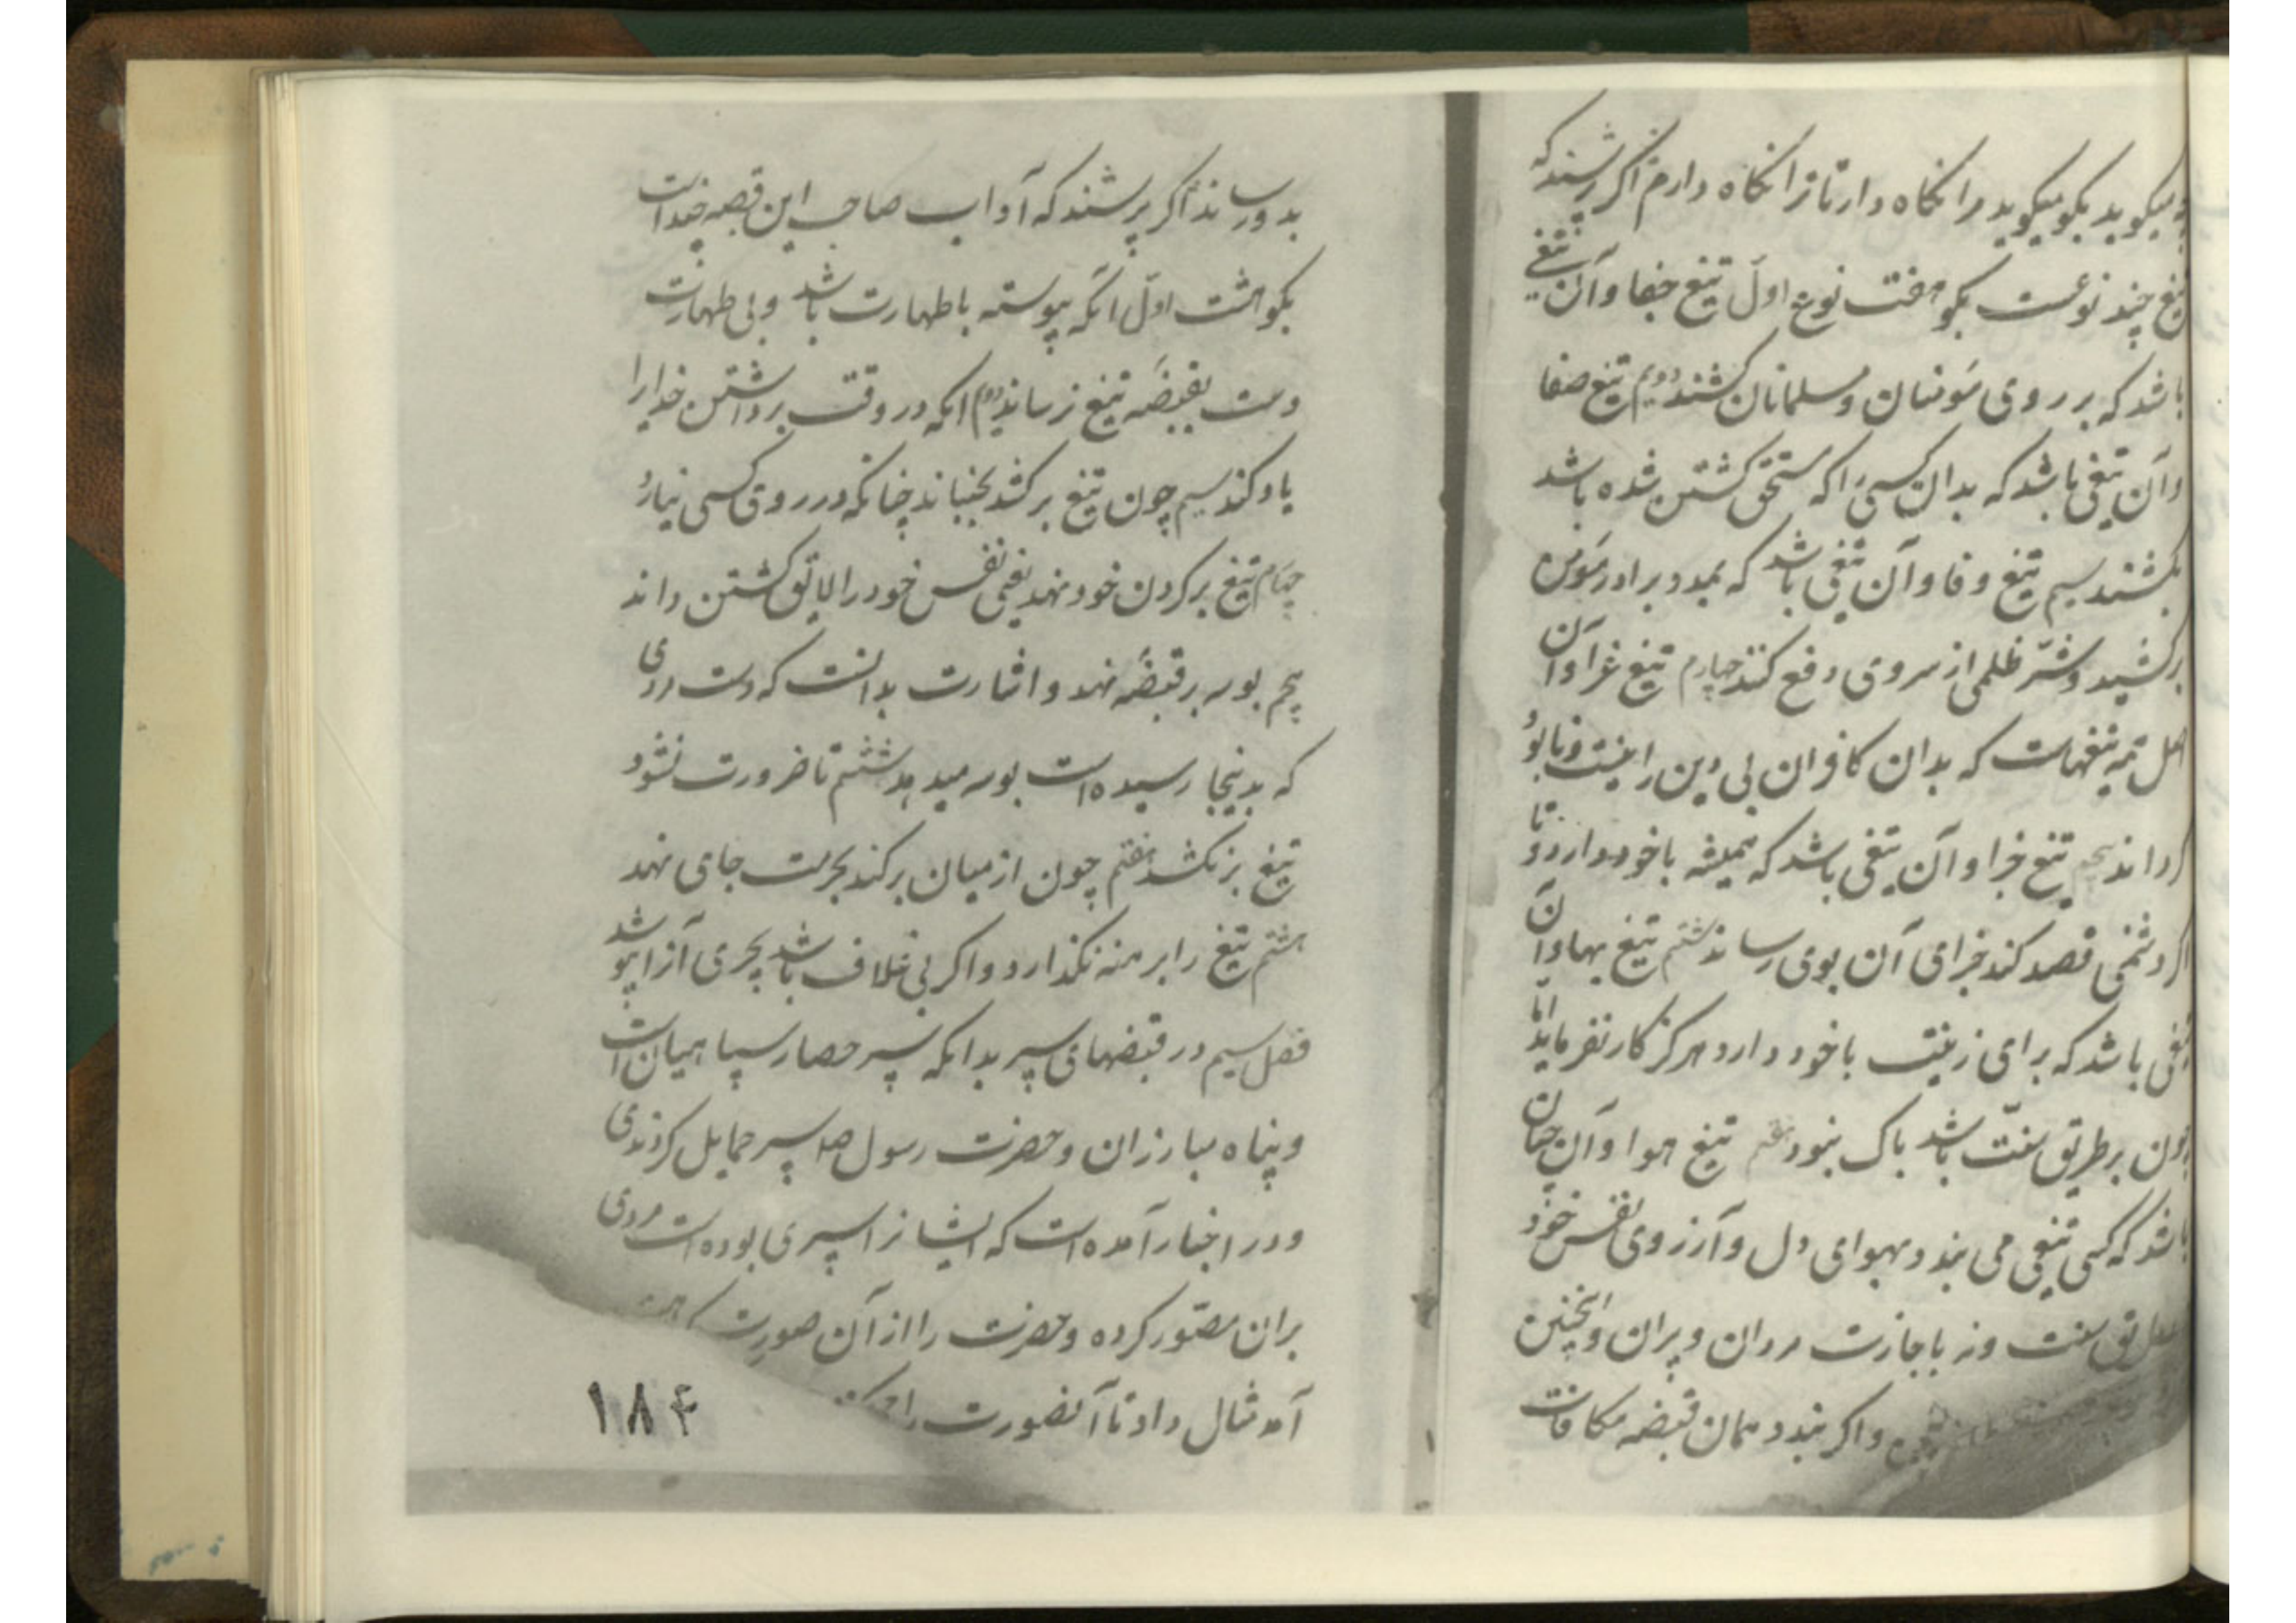 میکوید بکو میکوید مرا نکاه دار تا ترا نکاه دارم اکر پرسند که
تیغ چند نوعست بکو هفت نوع اول تیغ جفا و آن تیغی
باشد که بر روی مؤمنان و مسلمانان کشند دویم تیغ صفا
و آن تیغی باشد که بدان کسی را که مستحق کشتن شده باشد
بکشند سیم تیغ وفا و آن تیغی باشد که بمدد برادر مؤمن
برکشید و شر ظلمی از سر وی دفع کنند چهارم تیغ غزا و آن
اصل همه تیغهاست که بدان کافران بی دین را نیست و نابود
کردانند پنجم تیغ جزا و آن تیغی باشد که همیشه با خود دارد تا
اکر دشمنی قصد کند جزای آن بوی رساند ششم تیغ بها و آن
تیغی باشد که برای زینت با خود دارد هرکز کار نفرماید اما
چون بر طریق سنت باشد باک نبود هفتم تیغ هوا و آن چنان
باشد که کسی تیغی می بندد بهوای دل و آرزوی نفس خود
طریق سنت و نه باجازت مردان و پیران و اینچنین
و اکر بندد همان قبضه مکافات
بدو رساند اکر پرسند که آداب صاحب این قبضه چنداست
بکو هشت اول انکه پیوسته با طهارت باشد و بی طهارت
دست بقبضه تیغ نرساند دوم انکه در وقت برداشتن خدا را
یاد کند سیم چون تیغ برکشد بجنباند چنانکه در روی کسی نیارد
چهارم تیغ بر کردن خود نهد یعنی نفس خود را لایق کشتن داند
پنجم بوسه بر قبضه نهد و اشارت بدانست که دست مردی
که بدینجا رسیده است بوسه میدهد ششم تا ضرورت نشود
تیغ برنکشد هفتم چون از میان برکند بحرمت جای نهد
هشتم تیغ را برهنه نکذارد و اکر بی غلاف باشد بچیزی آنرا پوشد
فصل سیم در قبضهای سپر بدانکه سپر حصار سپاهیان است
و پناه مبارزان و حضرت رسول صلعم سپر حمایل کردندی
و در اخبار آمده است که ایشانرا سپری بوده است مردی
بران مصور کرده و حضرت را از آن صورت
آمد مثال داد تا آنصورت را
۱۸۴